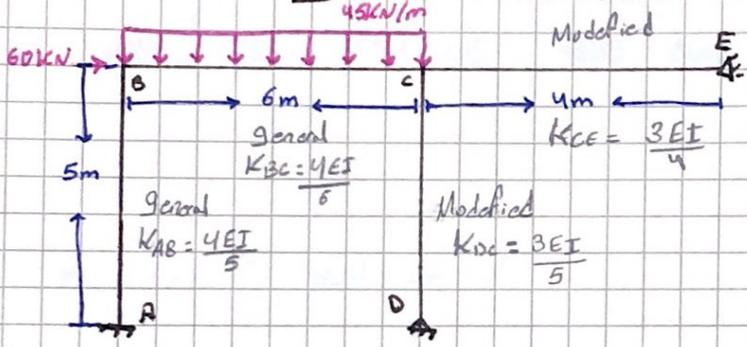 45KN/m
Modefied
E
60KN
B
C
6m
4m
general
K_BC = 4EI/6
K_CE = 3EI/4
5m
general
K_AB = 4EI/5
Modefied
K_DC = 3EI/5
A
D